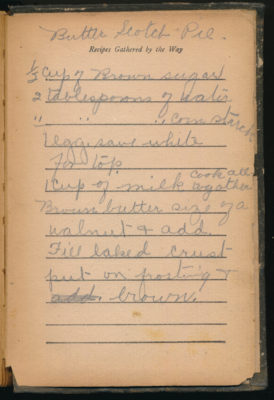 Butter Scotch Pie.
Recipes Gathered by the Way
1/2 cup of Brown sugar
2 tablespoons of water
" " " corn starch
1 egg, save white
for top
1 cup of milk cook all together
Brown butter size of a
walnut & add
Fill baked crust
put on frosting &
add. brown.